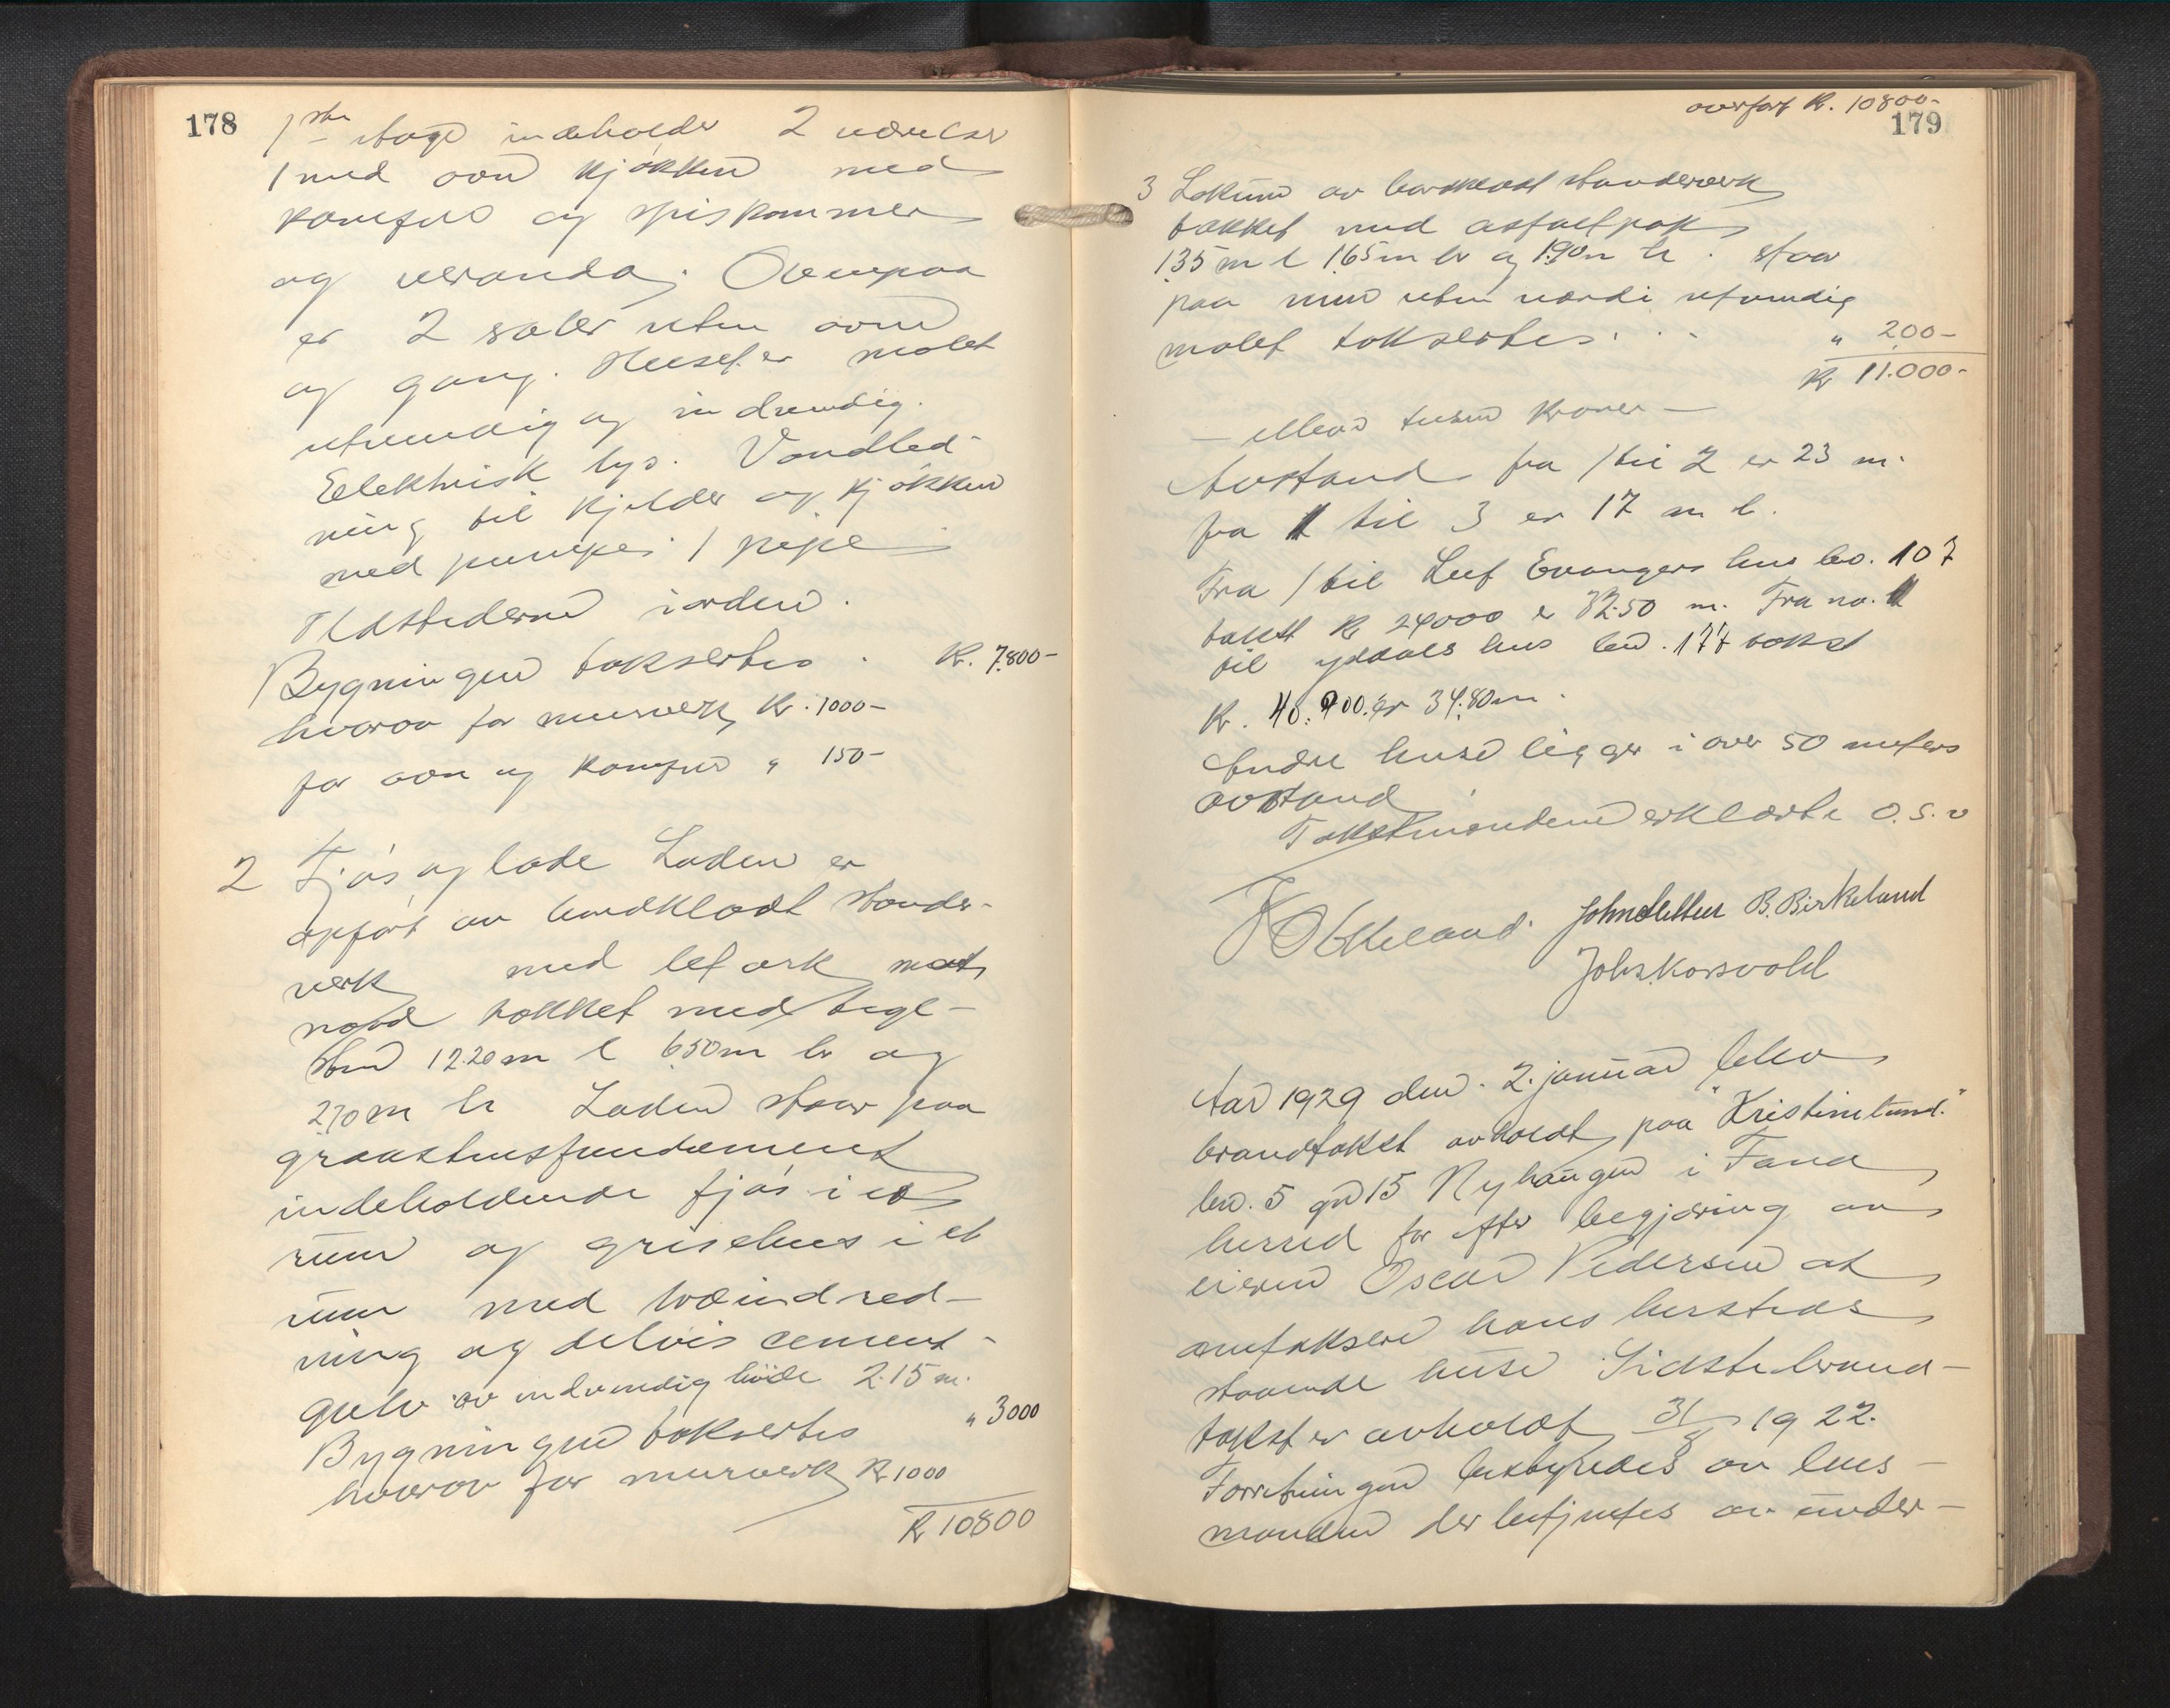 178
1ste etage indeholder 2 værelser
1 med ovn kjøkken med
komfur og spiskammer
og veranda. Ovenpaa
er 2 saler uten ovn
og gang. Huset er malet
utvendig og indvendig.
Elektrisk lys. Vandled-
ning til kjelder og kjøkken
med pumpe. 1 pipe
Ildstederne i orden.
Bygningen takseertes . Kr. 7.800-
hvorav for murverk Kr. 1000-
for ovn og komfur " 150-
2 Fjøs og lade Laden er
opført av bordklædt stender-
verk med let ark mot
nord tækket med tegl-
sten 12.20 m l 6.50 m br og
2.70 m h Laden staar paa
graastensfundement
indeholdende fjøs i et
rum og grisehus i et
rum med træindred-
ning og delvis cement-
gulv av indvendig høide 2.15 m.
Bygningen taksertes " 3000
hvorav for murverk Kr 1000
Kr 10800
overført Kr. 10800-
179
3 Lokum av bordklædt stenderverk
tækket med asfaltpap
1.35 m l 1.65 m br og 1.90 m h. staar
paa mur uten værdi utvendig
malet taksertes . . . " 200-
Kr 11.000-
- elleve tusen kroner -
Avstand fra 1 til 2 er 23 m.
fra 1 til 3 er 17 m l.
Fra 1 til Leif Evangers hus bno. 107
takst Kr 24000 er 32.50 m. Fra no. 1
til Yddals hus bno. 177 takst
Kr. 40.900. er 34.80 m.
Andre huse ligger i over 50 meters
avstand
Takstmændene erklærte o.s.v
John Sletten B. Birkeland
Johs. Korsvold
Aar 1929 den 2. januar blev
brandtakst avholdt paa "Kristinelund."
bno. 5 gno 15 Nyhaugen i Fana
herred for efter begjæring av
eieren Oscar Pedersen at
omtaksere hans hersteds
staaende huse Sidste brand-
takst er avholdt 31/8 1922.
Forretningen bestyredes av lens-
manden der betjentes av under-